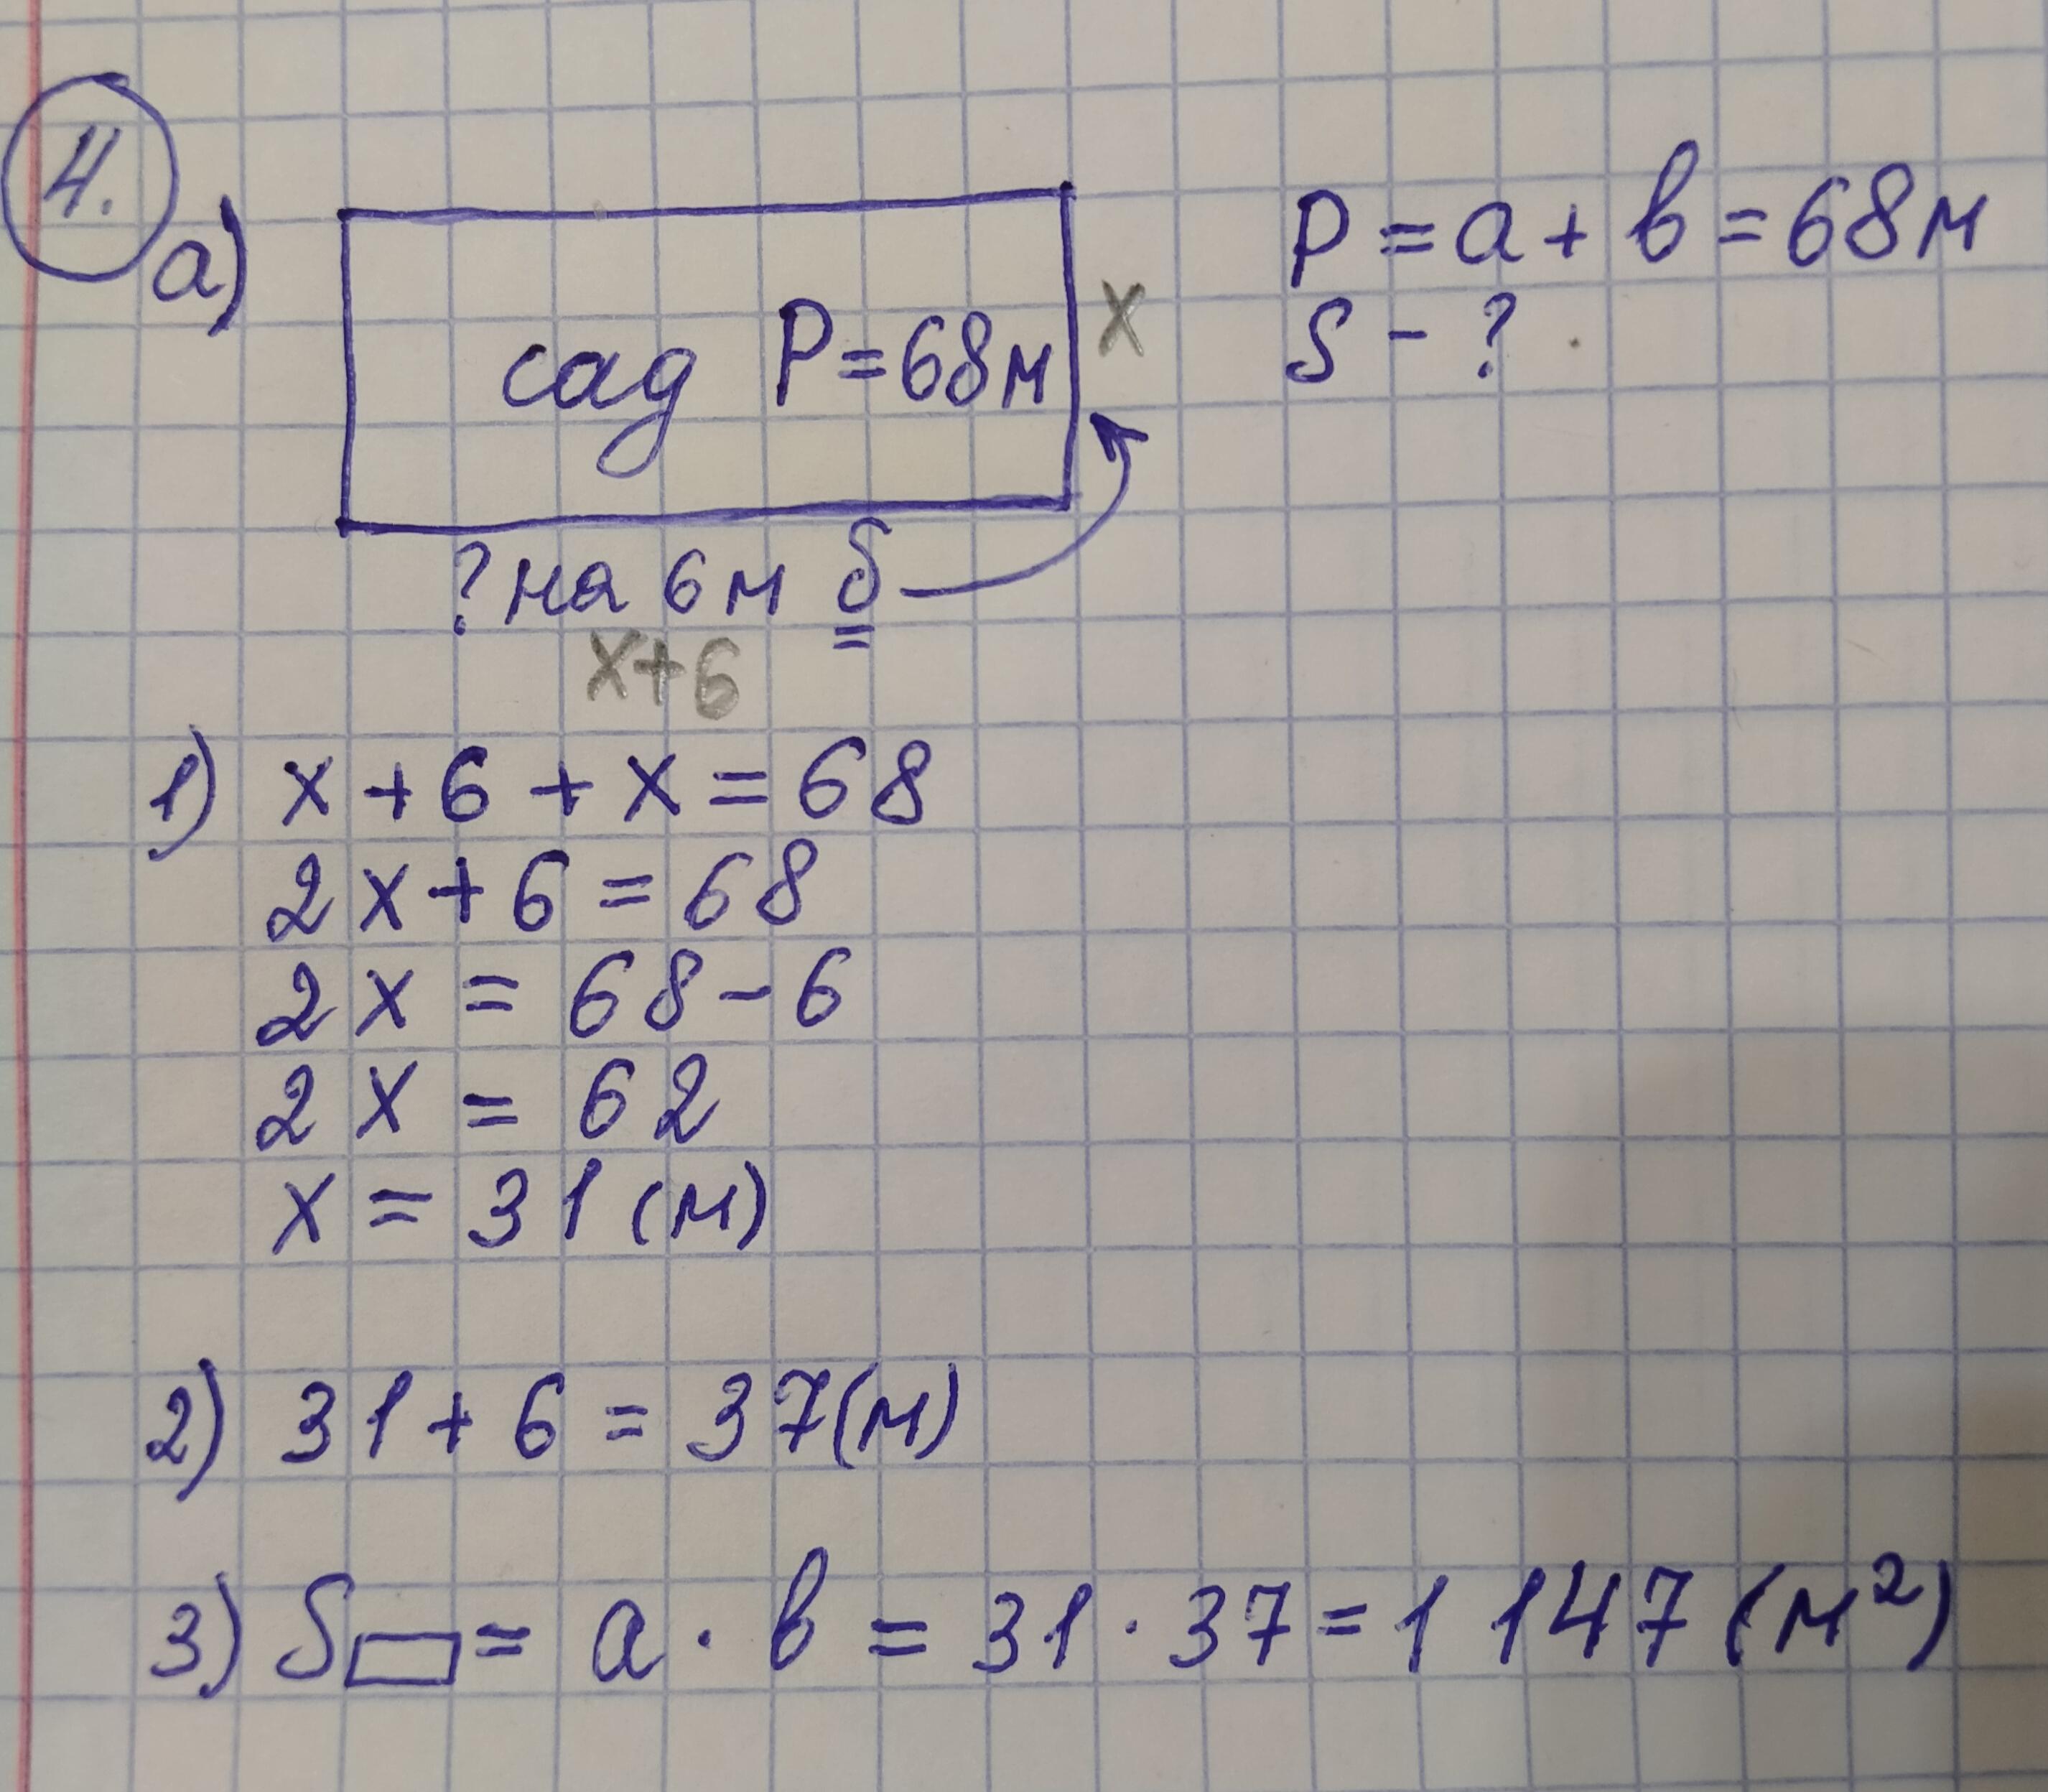 4.
а)
P = a + b = 68м
x
S - ?
сад P = 68м
? на 6м б
x+6
1) x + 6 + x = 68
2x + 6 = 68
2x = 68 - 6
2x = 62
x = 31 (м)
2) 31 + 6 = 37(м)
3) S▭ = a · b = 31 · 37 = 1 147 (м²)